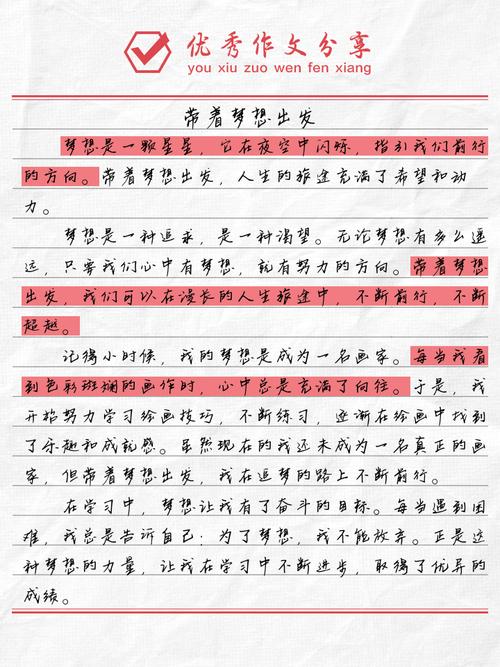 优秀作文分享
you xiu zuo wen fen xiang
带着梦想出发
梦想是一颗星星，它在夜空中闪烁，指引我们前行
的方向。带着梦想出发，人生的旅途充满了希望和动
力。
梦想是一种追求，是一种渴望。无论梦想有多么遥
远，只要我们心中有梦想，就有努力的方向。带着梦想
出发，我们可以在漫长的人生旅途中，不断前行，不断
超越。
记得小时候，我的梦想是成为一名画家。每当我看
到色彩斑斓的画作时，心中总是充满了向往。于是，我
开始努力学习绘画技巧，不断练习，逐渐在绘画中找到
了乐趣和成就感。虽然现在的我还未成为一名真正的画
家，但带着梦想出发，我在追梦的路上不断前行。
在学习中，梦想让我有了奋斗的目标。每当遇到困
难，我总是告诉自己：为了梦想，我不能放弃。正是这
种梦想的力量，让我在学习中不断进步，取得了优异的
成绩。